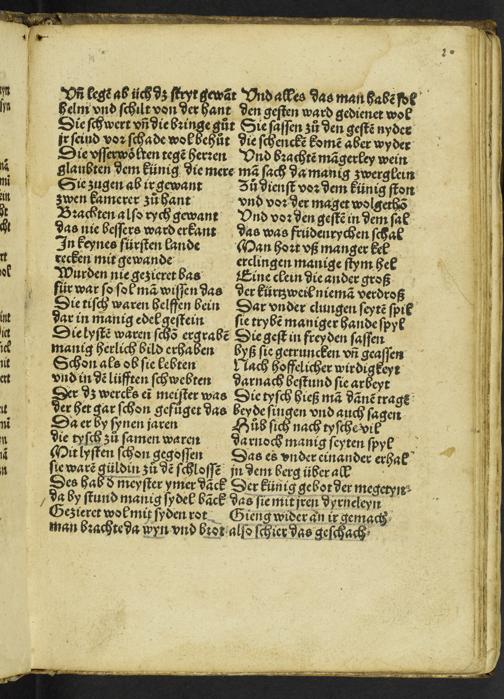 Vñ legē ab üch dz stryt gewāt
helm vnd schilt von der hant
Die schwert vñ die bringe gůt
jr seind vor schade wol behůt
Die vsserwölten tegē herren
glaubten dem künig die mere
Sie zugen ab ir gewant
zwen kamerer zů hant
Brachten also rych gewant
das nie bessers ward erkant
In keynes fürsten lande
recken mit gewande
Wurden nie gezieret bas
für war so sol mā wissen das
Die tisch waren helffen bein
dar in manig edel gestein
Die lystē waren schō ergrabē
manig herlich bild erhaben
Schon als ob sie lebten
vnd in dē lüfften schwebten
Der dz wercks ei meister was
der het gar schon gefüget das
Da er by synen jaren
die tysch zů samen waren
Mit lysten schon gegossen
sie warē güldin zů dē schlossē
Des hab d meyster ymer dāck
da by stund manig sydel bāck
Gezieret wol mit syden rot
man brachte da wyn vnd brot
Vnd alles das man habē sol
den gesten ward gedienet wol
Sie sassen zů den gestē nyder
die schenckē komē aber wyder
Vnd brachtē māgerley wein
mā sach da manig zwerglein
Zů dienst vor dem künig ston
vnd vor der maget wolgethō
Vnd vor den gestē in dem sal
das was freüdenrychen schal
Man hort vß manger kel
erclingen manige stym hel
Eine clein die ander groß
der kürzweil niemā verdroß
Dar vnder clungen seytē spil
sie trybē maniger hande spyl
Die gest in freyden sassen
byß sie getruncken vñ geassen
Nach hoffelicher wirdigkeyt
darnach bestund sie arbeyt
Die tysch hieß mā dānē tragē
beyde singen vnd auch sagen
Hůb sich nach tysche vil
darnoch manig seyten spyl
Das es vnder einander erhal
jn dem berg über all
Der künig gebot der megetyn
das sie mit jren dyrneleyn
Gieng wider an ir gemach
also schier das geschach